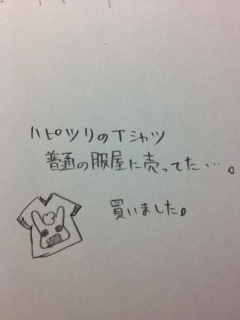 ハピツリのTシャツ
普通の服屋に売ってた…。
買いました。